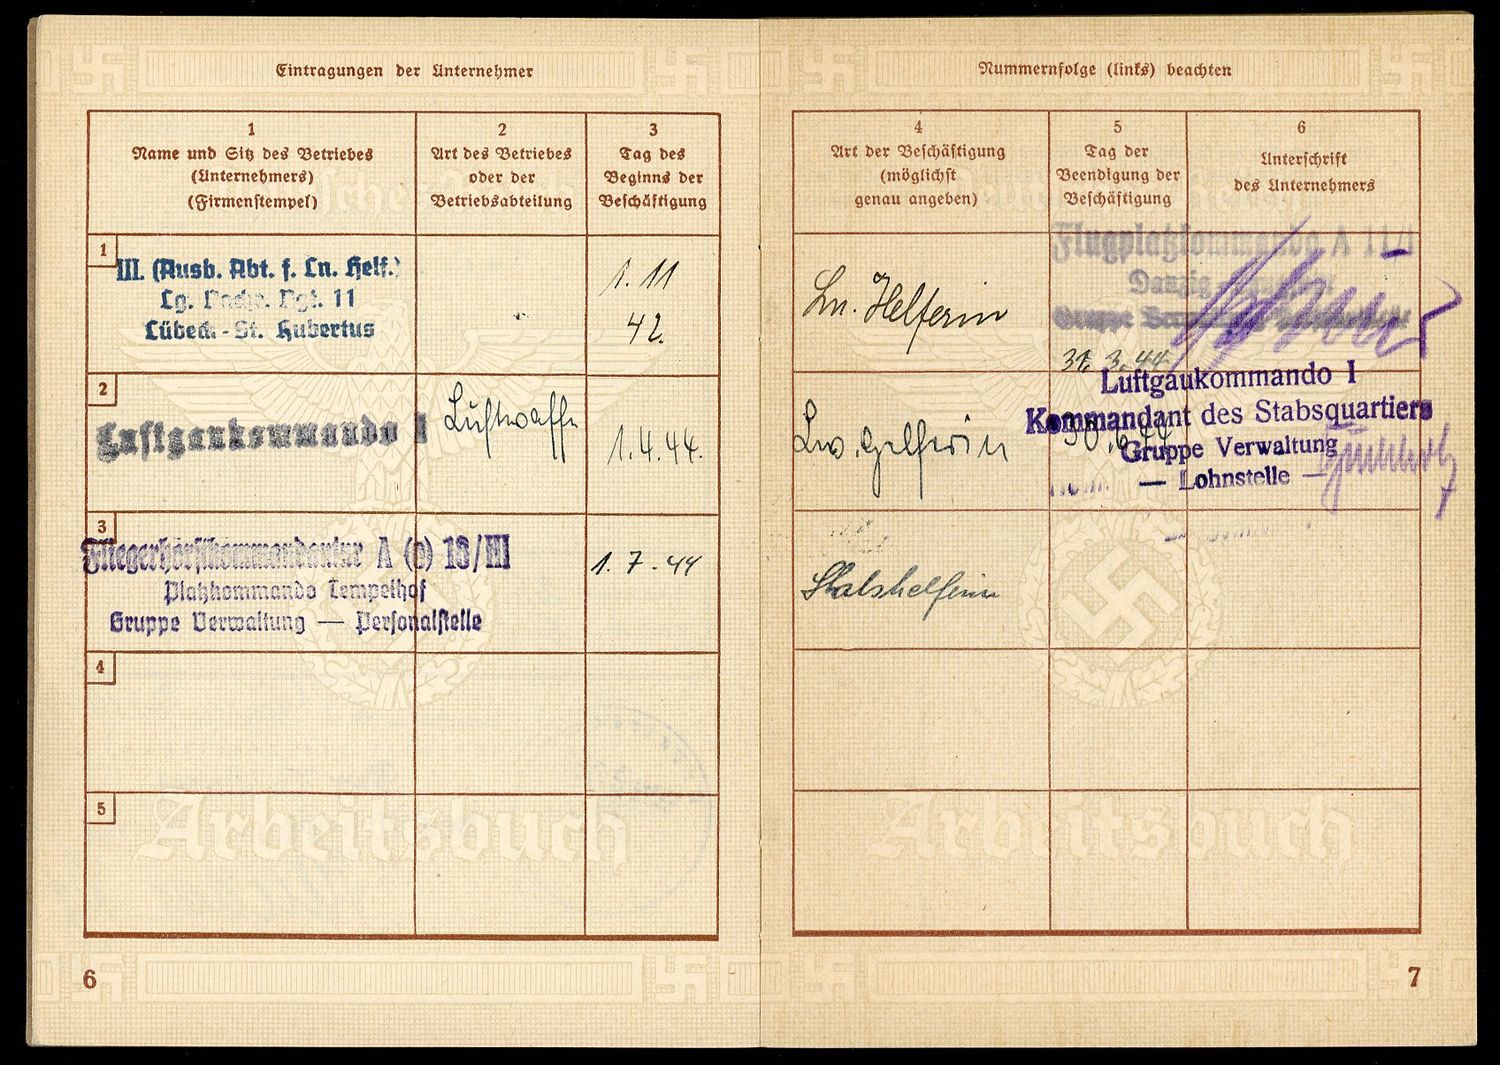 Eintragungen der Unternehmer
1
Name und Sitz des Betriebes
(Unternehmers)
(Firmenstempel)
2
Art des Betriebes
oder der
Betriebsabteilung
3
Tag des
Beginns der
Beschäftigung
1
III. (Ausb. Abt. f. Ln. Helf.)
Lg. Rgt. 11
Lübeck - St. Hubertus
1. 11
42.
2
Luftgaukommando I
Luftwaffe
1.4.44.
3
Fliegerhorstkommandantur A (o) 13/III
Platzkommando Tempelhof
Gruppe Verwaltung — Personalstelle
1. 7. 44
4
5
Arbeitsbuch
6
Nummernfolge (links) beachten
4
Art der Beschäftigung
(möglichst
genau angeben)
5
Tag der
Beendigung der
Beschäftigung
6
Unterschrift
des Unternehmers
Ln. Helferin
Flugplatzkommando A 11/I
Danzig
Gruppe
31. 3. 44
Lw. Helferin
30.6.44
Luftgaukommando I
Kommandant des Stabsquartiers
Gruppe Verwaltung
— Lohnstelle —
Stabshelferin
Arbeitsbuch
7